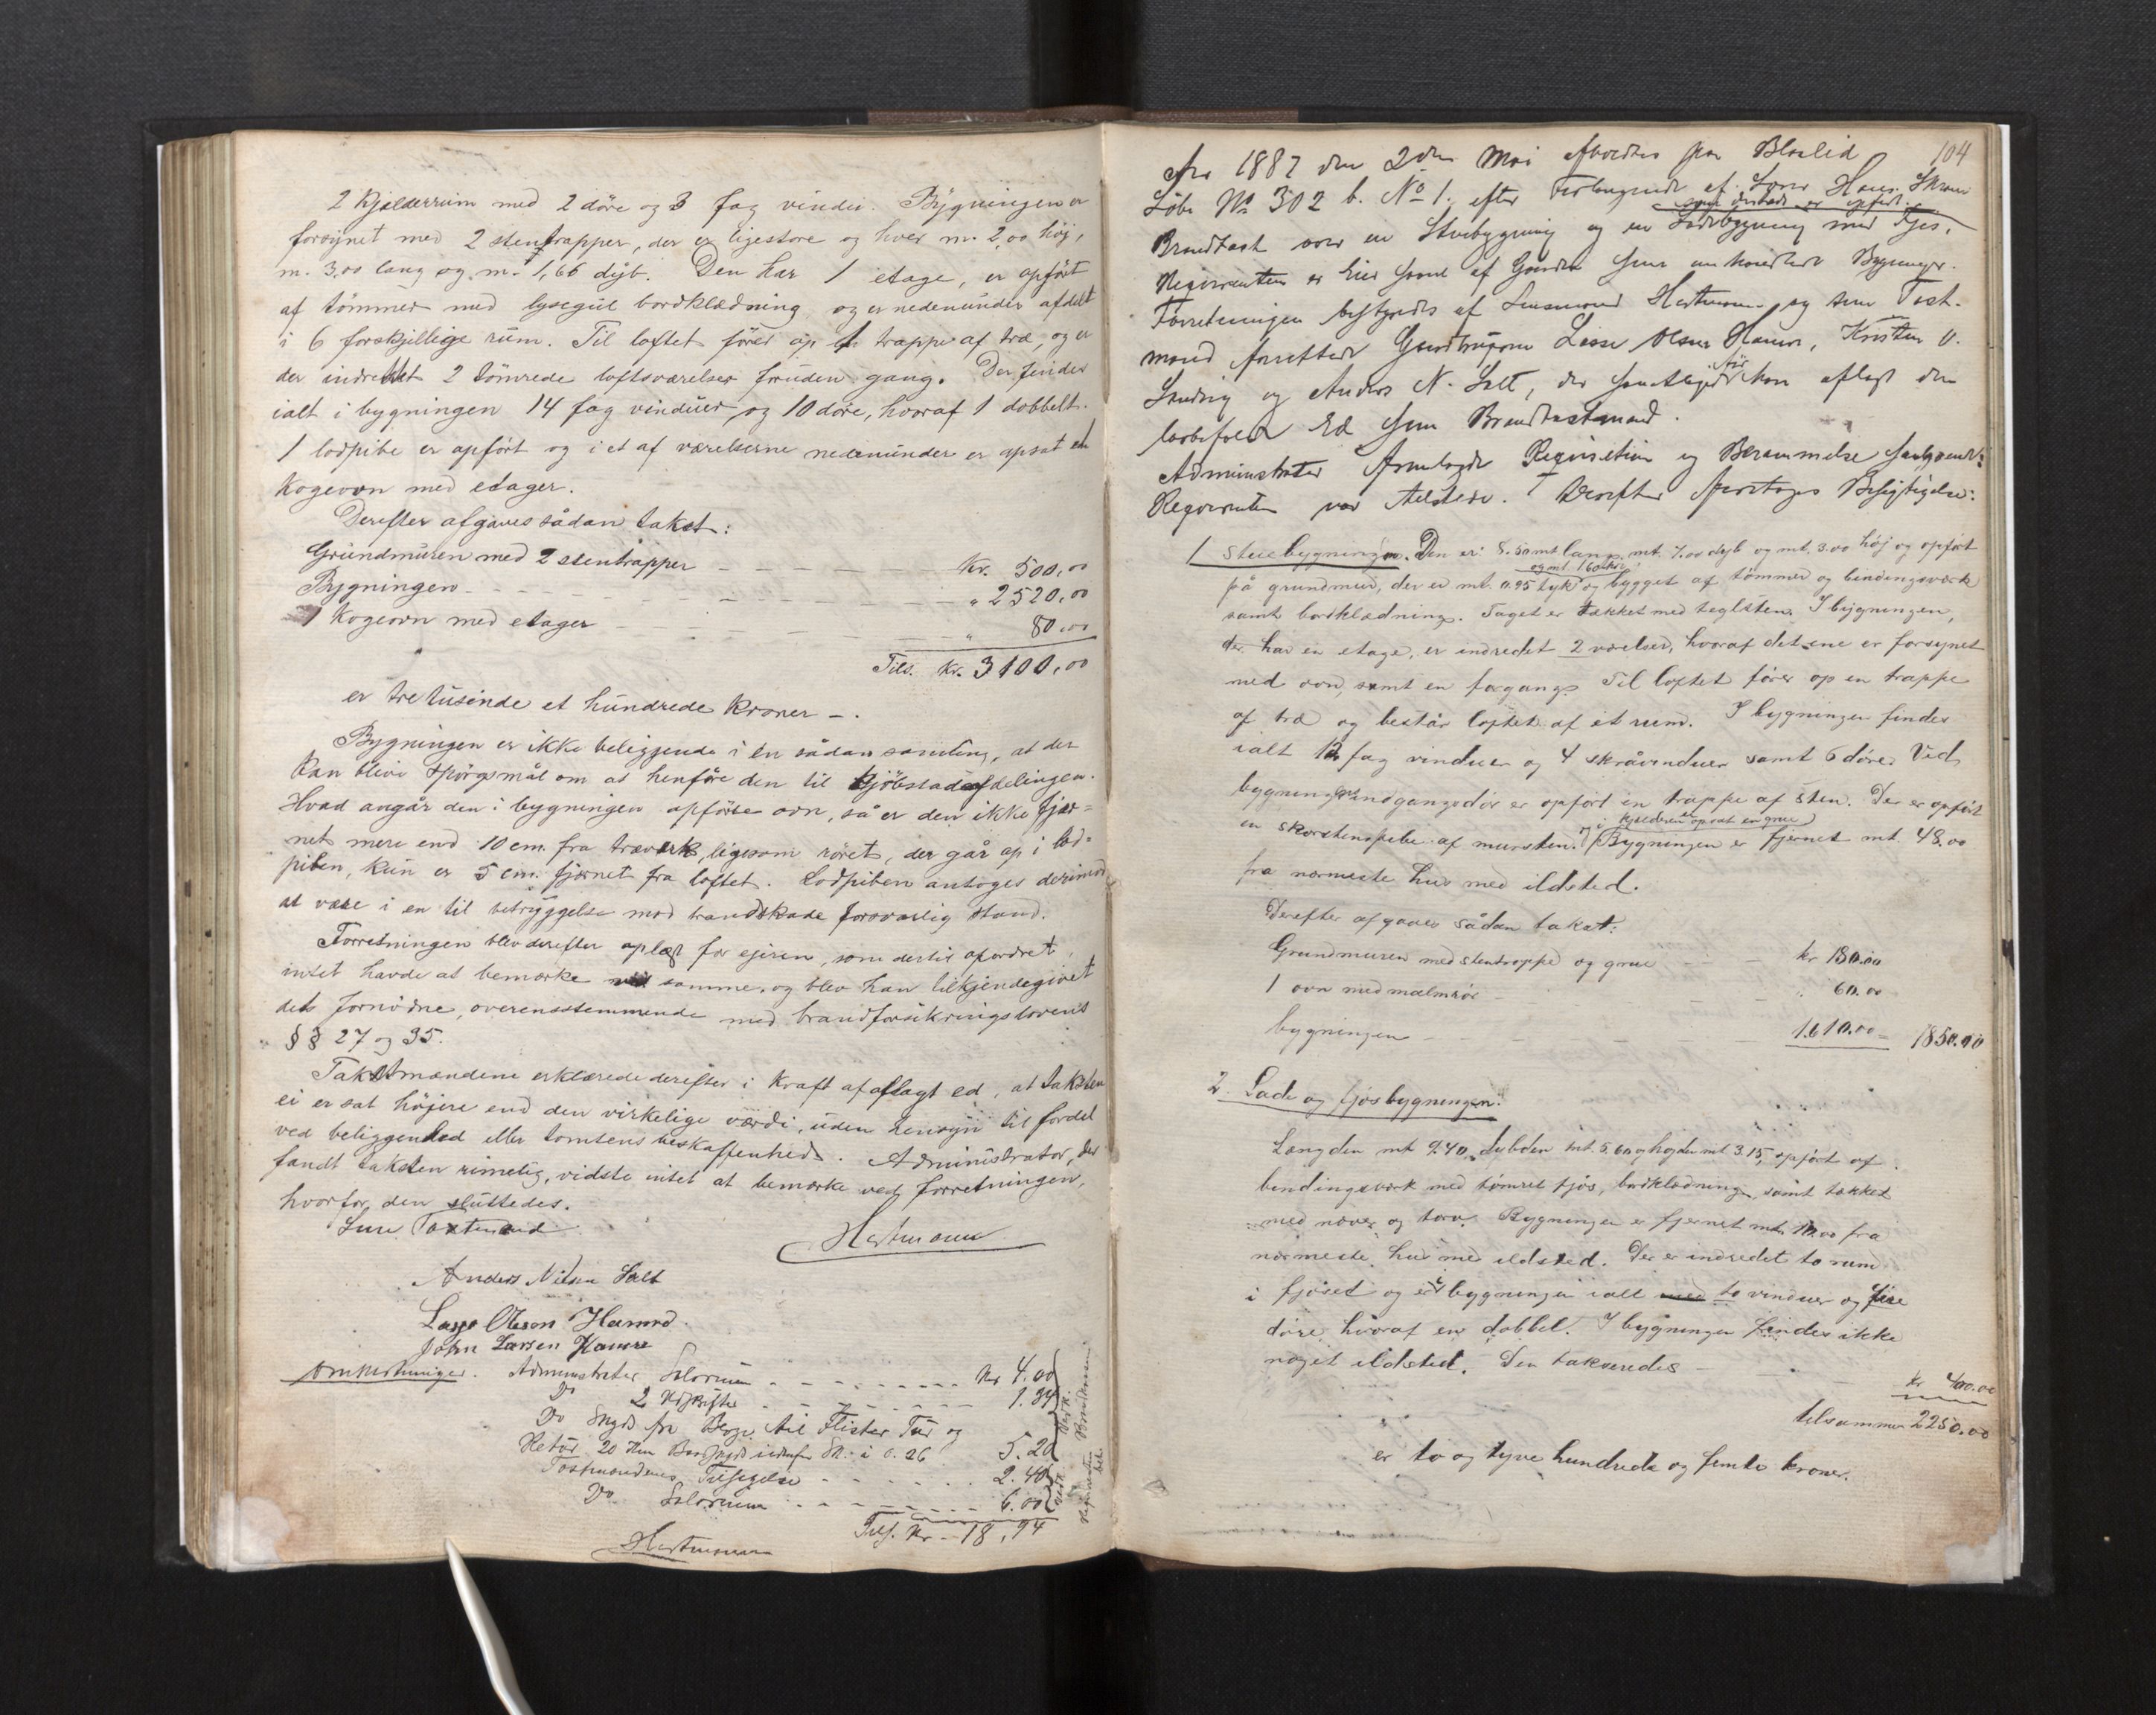 2 kjælderrum med 2 döre og 3 fag vindu. Bygningen er
forsynet med 2 stentrapper, der er ligestore og hver m. 2,00 høj,
m. 3,00 lang og m. 1,66 dyb. Den har 1 etage, er opført
af tömmer med lysegul bordklædning og er nedenunder afdelt
i 6 forskjellige rum. Til loftet fører op en trappe af træ, og er
der indrettet 2 tömrede loftsværelser foruden gang. Der findes
ialt i bygningen 14 fag vinduer og 10 döre, hvoraf 1 dobbelt.
1 lodpibe er opført og i et af værelserne nedenunder er opsat en
kogeovn med etager.
Derefter afgaves sådan takst:
Grundmuren med 2 stentrapper Kr. 500,00
Bygningen " 2520,00
1 kogeovn med etager " 80,00
Tils. Kr. 3100,00
er tretusinde et hundrede kroner -.
Bygningen er ikke beliggende i en sådan samling, at der
kan blive spörgsmål om at henføre den til kjöbstadsafdelingen.
Hvad angår den i bygningen opførte ovn, så er den ikke fjær-
net mere end 10 cm. fra træværk, ligesom röret, der går op i lod-
piben, kun er 5 cm. fjernet fra loftet. Lodpiben antoges derimod
at være i en til betryggelse mod brandskade forsvarlig stand.
Forretningen blev derefter oplæst for ejeren, som dertil opfordret,
intet havde at bemærke ved samme, og blev han tilkjendegivet
det fornödne, overensstemmende med brandforsikringslovens
§§ 27 og 35.
Takstmændene erklærede derefter i kraft af aflagt ed, at taksten
ei er sat höjere end den virkelige værdi, uden hensyn til fordel
ved beliggenhed eller tomtens beskaffenhed. Administrator, der
fandt taksten rimelig, vidste intet at bemærke ved forretningen,
hvorfor den sluttedes.
Hartmann
Anders Nilsen Salt
Lasse Olsson Hamre.
John Larsen Hamre
Omkostninger. Administrator Salarium Kr 4.00
Do 2 Udskrifter 1.34
Do Skyds fra Til Tur og
Retur 20 Km 5.20
Tilsigelse 2.40
Do Salarium 6.00
Tils. Kr - 18,94
Hartmann
104
Aar 1887 den 2den Mai afholdtes paa Blaalid
Löbe No 302 b. No 1. efter Forlangende af Hans
Brandtaxt over en Stuebygning og en Ladebygning med Fjøs.
Rekvirenten er Eier af Gaarden Bygninger.
Forretningen bestyredes af Lensmand Hartmann og som Taxt-
mænd Lasse Olsson Hamre, Kristen O.
og Anders N. Salt, der før har aflagt den
lovbefalede Ed som Brandtaxtmænd.
Administrator fremlagde Rekvisition og Berammelse
Rekvirenten var tilstede. Derefter foretoges Besigtigelse:
1 Stuebygningen. Den er: 8.50 mt lang, mt. 7.00 dyb og mt. 3.00 höj og opført
og mt 1.60 höi
på grundmur, der er mt. 0.95 tyk og bygget af tømmer og bindingsværk
samt bordklædning. Taget er tækket med teglsten. I bygningen,
der har en etage, er indredet 2 værelser, hvoraf det ene er forsynet
med ovn, samt en forgang. Til loftet fører op en trappe
af træ og består loftet af et rum. I bygningen findes
ialt 12 fag vinduer og 4 skråvinduer samt 6 döre. Ved
bygningens indgangsdör er opført en trappe af sten. Der er opført
og i kjelderen er opsat en grue
en skorstenspibe af mursten. Bygningen er fjernet mt. 48.00
fra nærmeste hus med ildsted.
Derefter afgaves sådan takst:
Grundmuren med stentrappe og grue kr 180.00
1 ovn med malmrör " 60.00
bygningen 1610.00 = 1850.00
2. Lade og fjøsbygningen.
Længden mt 9.40, dybden mt. 5.60 og højden mt 3.15, opført af
bindingsværk med tömret fjös, bordklædning samt tækket
med næver og torv. Bygningen er fjernet mt. 10.00 fra
nærmeste hus med ildsted. Der er indredet to rum
i fjøset og er i bygningen ialt med to vinduer og fire
döre, hvoraf en dobbel. I bygningen findes ikke
noget ildsted. Den takseredes
kr 400.00
tilsammen 2250.00
er to og tyve hundrede og femti kroner.